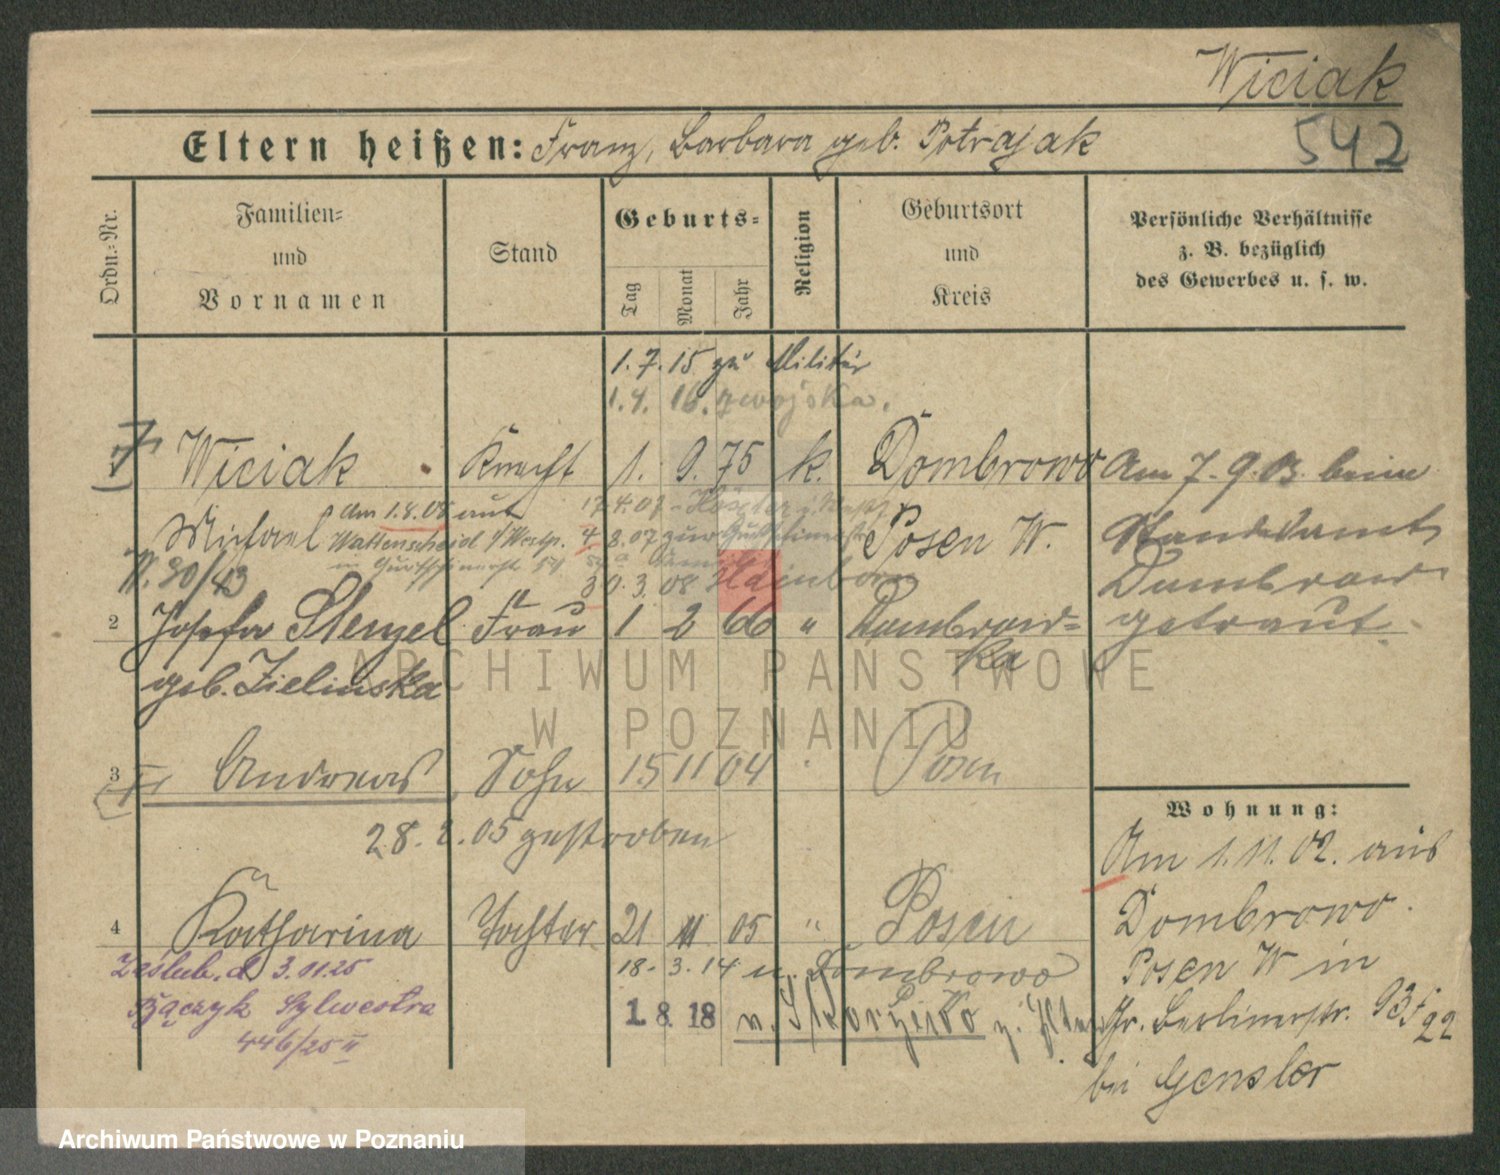 Wiciak
Eltern heißen: Franz, Barbara geb. Potrajak
542
Ordn.=Nr.
Familien=
und
Vornamen
Stand
Geburts=
Tag
Monat
Jahr
Religion
Geburtsort
und
Kreis
Persönliche Verhältnisse
z. B. bezüglich
des Gewerbes u. s. w.
1. 7. 15 zu Militär
1. 4. 16. z wojska.
Wiciak Knecht 1. 9. 75 k. Dombrowo Am 7. 9. 03. beim
Am 1.8.08 aus 17.4.07
Michael Wattenscheid 4.8.07 zur Posen W. Standesamt
W. 30/43
30.3.08 Dombrow
2 Josefa Stenzel Frau 1 2 66 " Dombrow= getraut.
ka
geb. Zielinska
3 Andreas Sohn 15 11 04 Posen
28. 2. 05 gestorben
Wohnung:
Am 1. 11. 02. aus
4 Katharina Tochter 21 11 05 " Posen Dombrowo.
Zaślub. d. 3.01.25 18. 3. 14 n. Dombrowo Posen W in
Bączyk Sylwestra 1. 8. 18 n. Gr. Berlinerstr. 93f
22
446/25 II
bei Gensler
ARCHIWUM PAŃSTWOWE
W POZNANIU
Archiwum Państwowe w Poznaniu